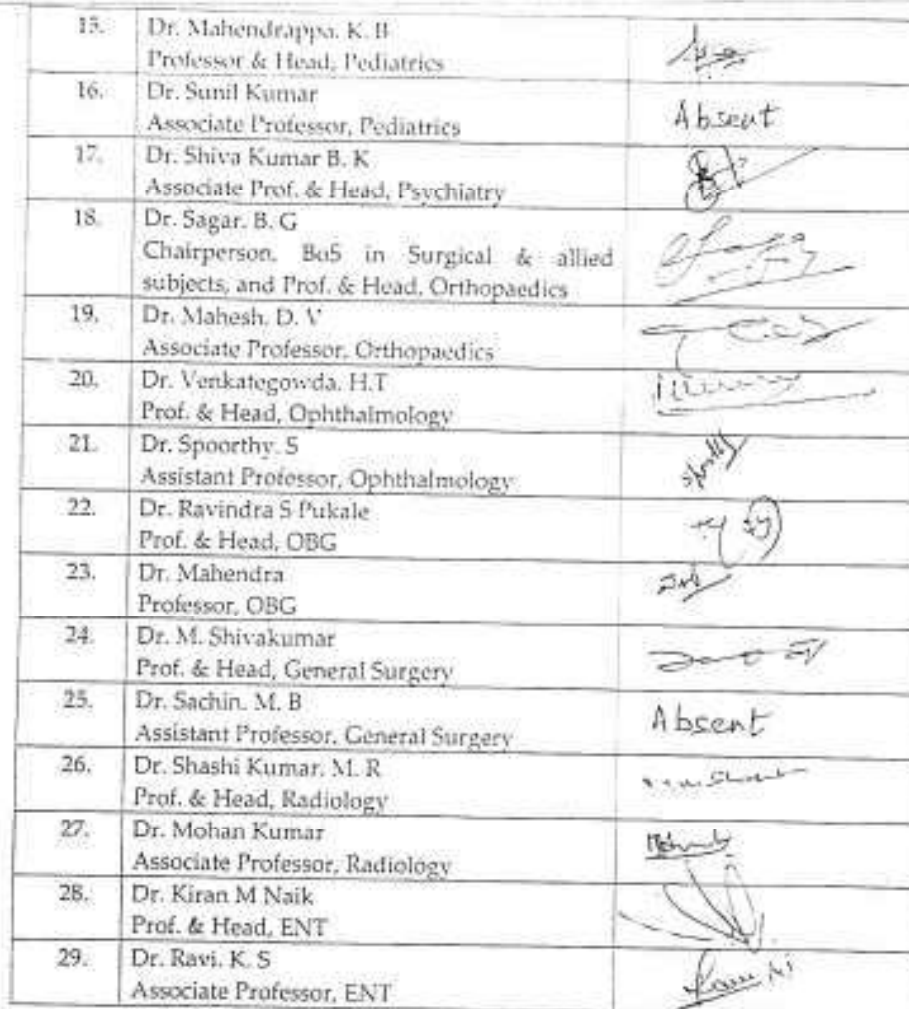 15.
Dr. Mahendrappa. K. B
Professor & Head, Pediatrics
16.
Dr. Sunil Kumar
Associate Professor, Pediatrics
Absent
17.
Dr. Shiva Kumar B. K
Associate Prof. & Head, Psychiatry
18.
Dr. Sagar. B. G
Chairperson, BoS in Surgical & allied
subjects, and Prof. & Head, Orthopaedics
19.
Dr. Mahesh. D. V
Associate Professor, Orthopaedics
20.
Dr. Venkategowda. H.T
Prof. & Head, Ophthalmology
21.
Dr. Spoorthy. S
Assistant Professor, Ophthalmology
22.
Dr. Ravindra S Pukale
Prof. & Head, OBG
23.
Dr. Mahendra
Professor, OBG
24.
Dr. M. Shivakumar
Prof. & Head, General Surgery
25.
Dr. Sachin. M. B
Assistant Professor, General Surgery
Absent
26.
Dr. Shashi Kumar. M. R
Prof. & Head, Radiology
27.
Dr. Mohan Kumar
Associate Professor, Radiology
28.
Dr. Kiran M Naik
Prof. & Head, ENT
29.
Dr. Ravi. K. S
Associate Professor, ENT